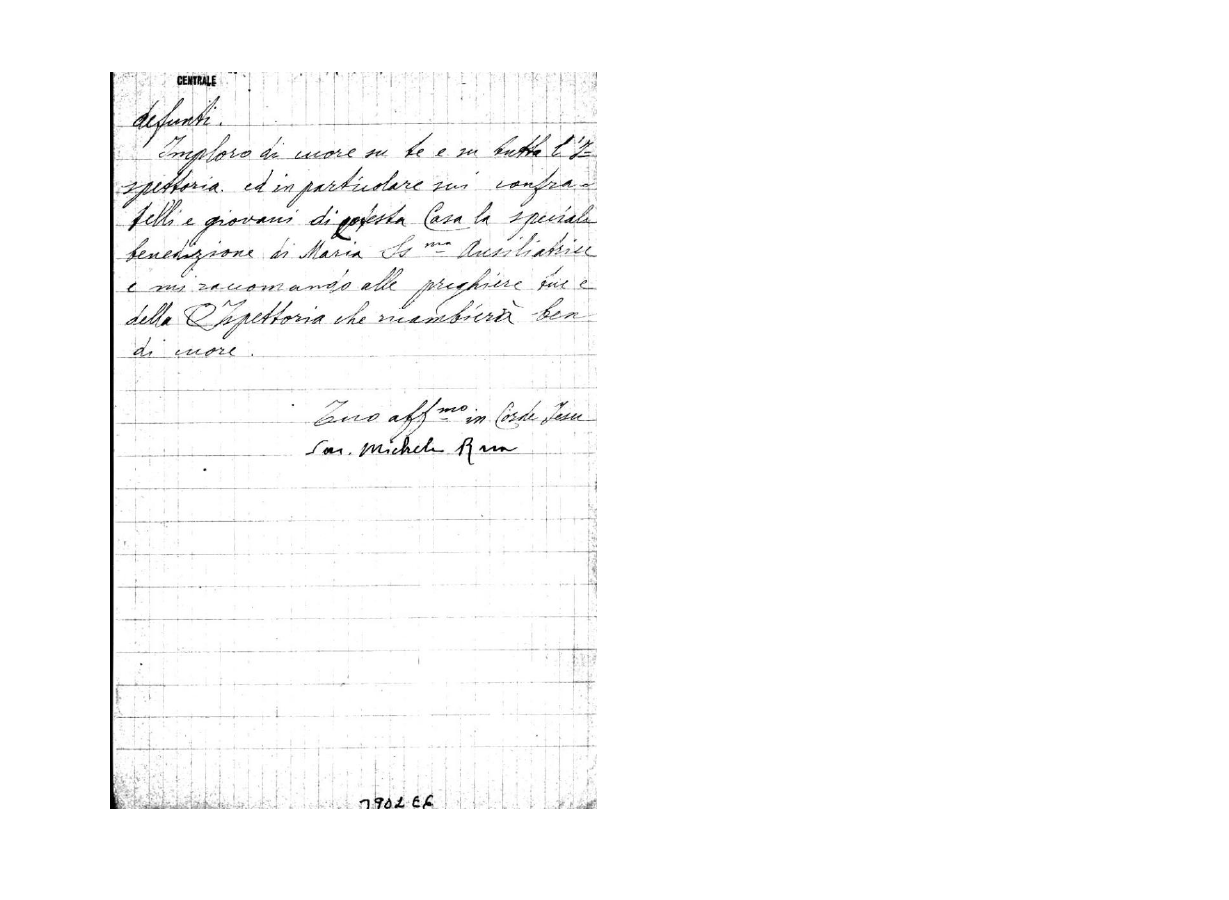 CENTRALE
defunti.
Imploro di cuore su te e su tutta l'I=
spettoria. ed in particolare sui confra=
telli e giovani di questa Casa la speciale
benedizione di Maria Ss ma Ausiliatrice
e mi raccomando alle preghiere tue e
della Ispettoria che ricambierà ben
di cuore.
Tuo aff mo in Corde Jesu
Sac. Michele Rua